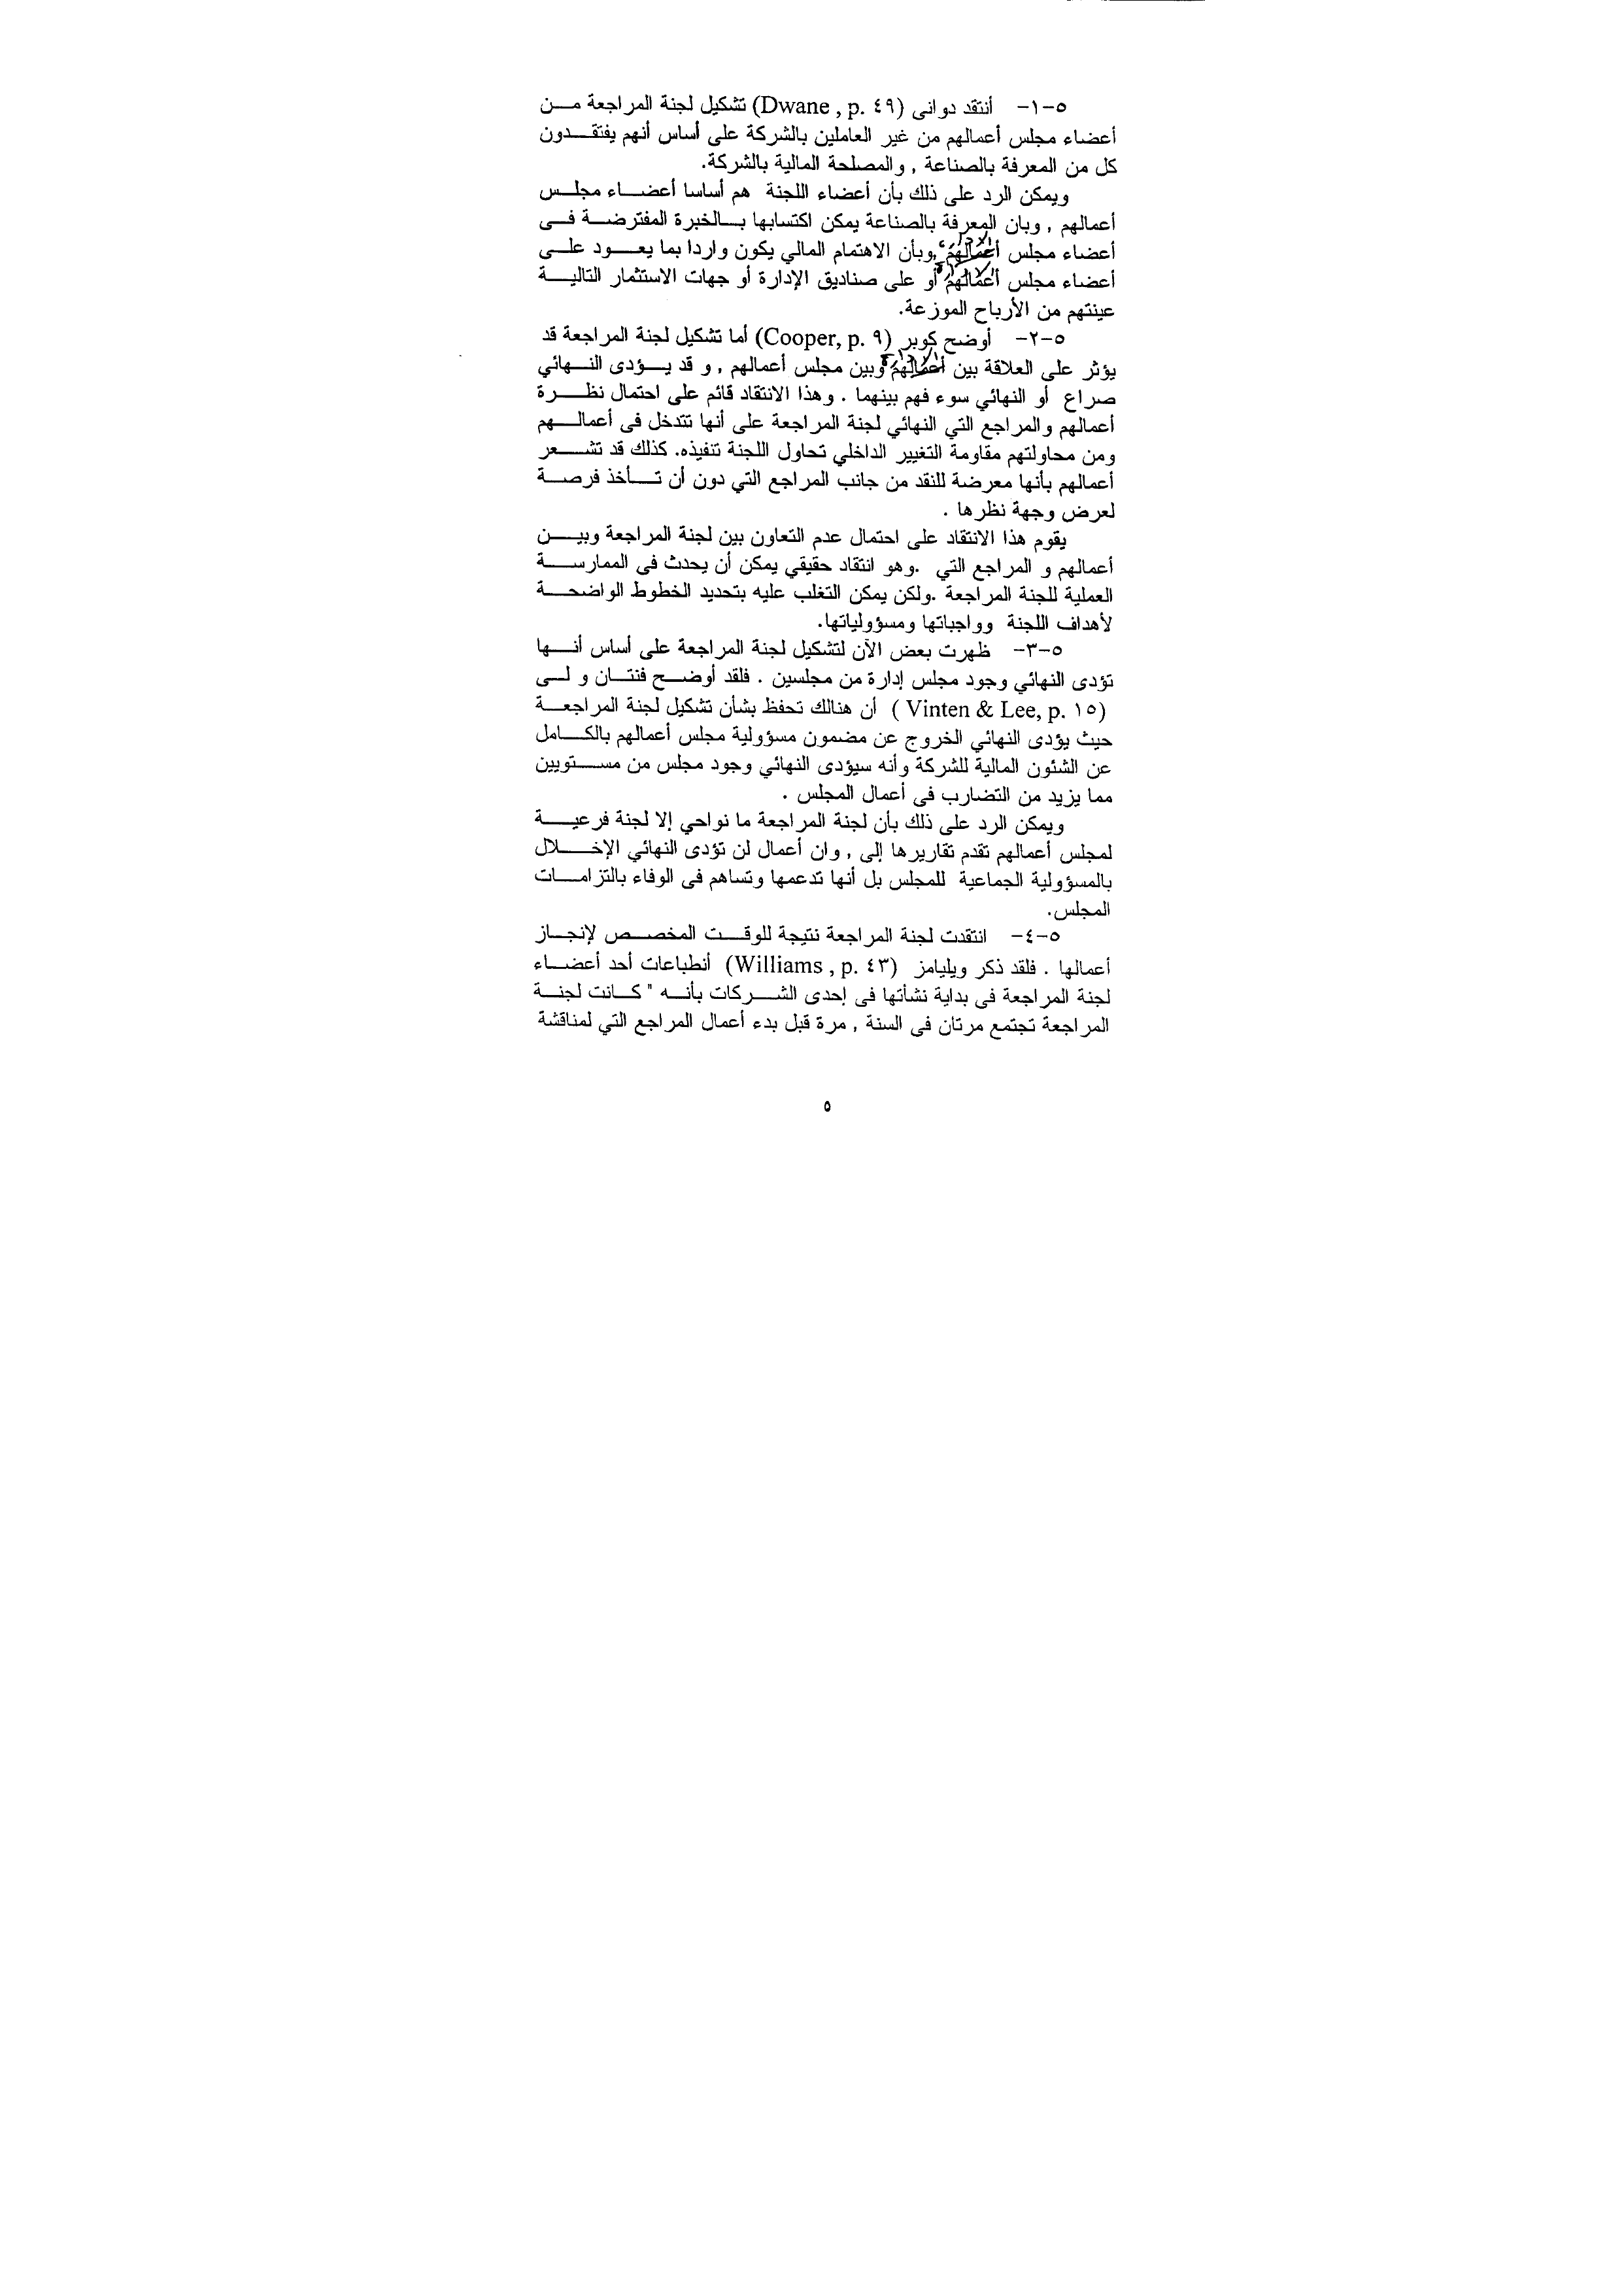 ٥-١- أنتقد دوانى (Dwane , p. ٤٩) تشكيل لجنة المراجعة من
أعضاء مجلس أعمالهم من غير العاملين بالشركة على أساس أنهم يفتقدون
كل من المعرفة بالصناعة , والمصلحة المالية بالشركة.
ويمكن الرد على ذلك بأن أعضاء اللجنة هم أساسا أعضاء مجلس
أعمالهم , وبان المعرفة بالصناعة يمكن اكتسابها بالخبرة المفترضة فى
أعضاء مجلس أعمالهم ,وبأن الاهتمام المالي يكون واردا بما يعود على
أعضاء مجلس أعمالهم أو على صناديق الإدارة أو جهات الاستثمار التالية
عينتهم من الأرباح الموزعة.
٥-٢- أوضح كوبر (Cooper, p. ٩) أما تشكيل لجنة المراجعة قد
يؤثر على العلاقة بين أعمالهم وبين مجلس أعمالهم , و قد يؤدى النهائي
صراع أو النهائي سوء فهم بينهما . وهذا الانتقاد قائم على احتمال نظرة
أعمالهم والمراجع التي النهائي لجنة المراجعة على أنها تتدخل فى أعمالهم
ومن محاولتهم مقاومة التغيير الداخلي تحاول اللجنة تنفيذه. كذلك قد تشعر
أعمالهم بأنها معرضة للنقد من جانب المراجع التي دون أن تأخذ فرصة
لعرض وجهة نظرها .
يقوم هذا الانتقاد على احتمال عدم التعاون بين لجنة المراجعة وبين
أعمالهم و المراجع التي .وهو انتقاد حقيقي يمكن أن يحدث فى الممارسة
العملية للجنة المراجعة .ولكن يمكن التغلب عليه بتحديد الخطوط الواضحة
لأهداف اللجنة وواجباتها ومسؤولياتها.
٥-٣- ظهرت بعض الآن لتشكيل لجنة المراجعة على أساس أنها
تؤدى النهائي وجود مجلس إدارة من مجلسين . فلقد أوضح فنتان و لى
(Vinten & Lee, p. ١٥ ) أن هنالك تحفظ بشأن تشكيل لجنة المراجعة
حيث يؤدى النهائي الخروج عن مضمون مسؤولية مجلس أعمالهم بالكامل
عن الشئون المالية للشركة وأنه سيؤدى النهائي وجود مجلس من مستويين
مما يزيد من التضارب فى أعمال المجلس .
ويمكن الرد على ذلك بأن لجنة المراجعة ما نواحي إلا لجنة فرعية
لمجلس أعمالهم تقدم تقاريرها إلى , وان أعمال لن تؤدى النهائي الإخلال
بالمسؤولية الجماعية للمجلس بل أنها تدعمها وتساهم فى الوفاء بالتزامات
المجلس.
٥-٤- انتقدت لجنة المراجعة نتيجة للوقت المخصص لإنجاز
أعمالها . فلقد ذكر ويليامز (Williams , p. ٤٣) أنطباعات أحد أعضاء
لجنة المراجعة فى بداية نشأتها فى إحدى الشركات بأنه " كانت لجنة
المراجعة تجتمع مرتان فى السنة , مرة قبل بدء أعمال المراجع التي لمناقشة
٥